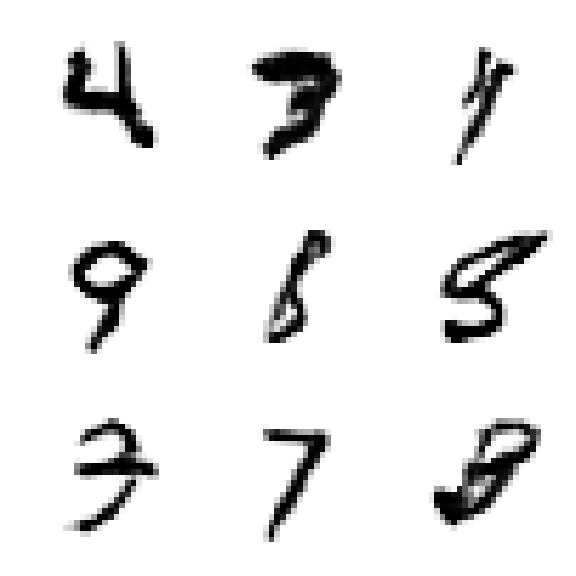 4 3
9 8 5
3 7 8